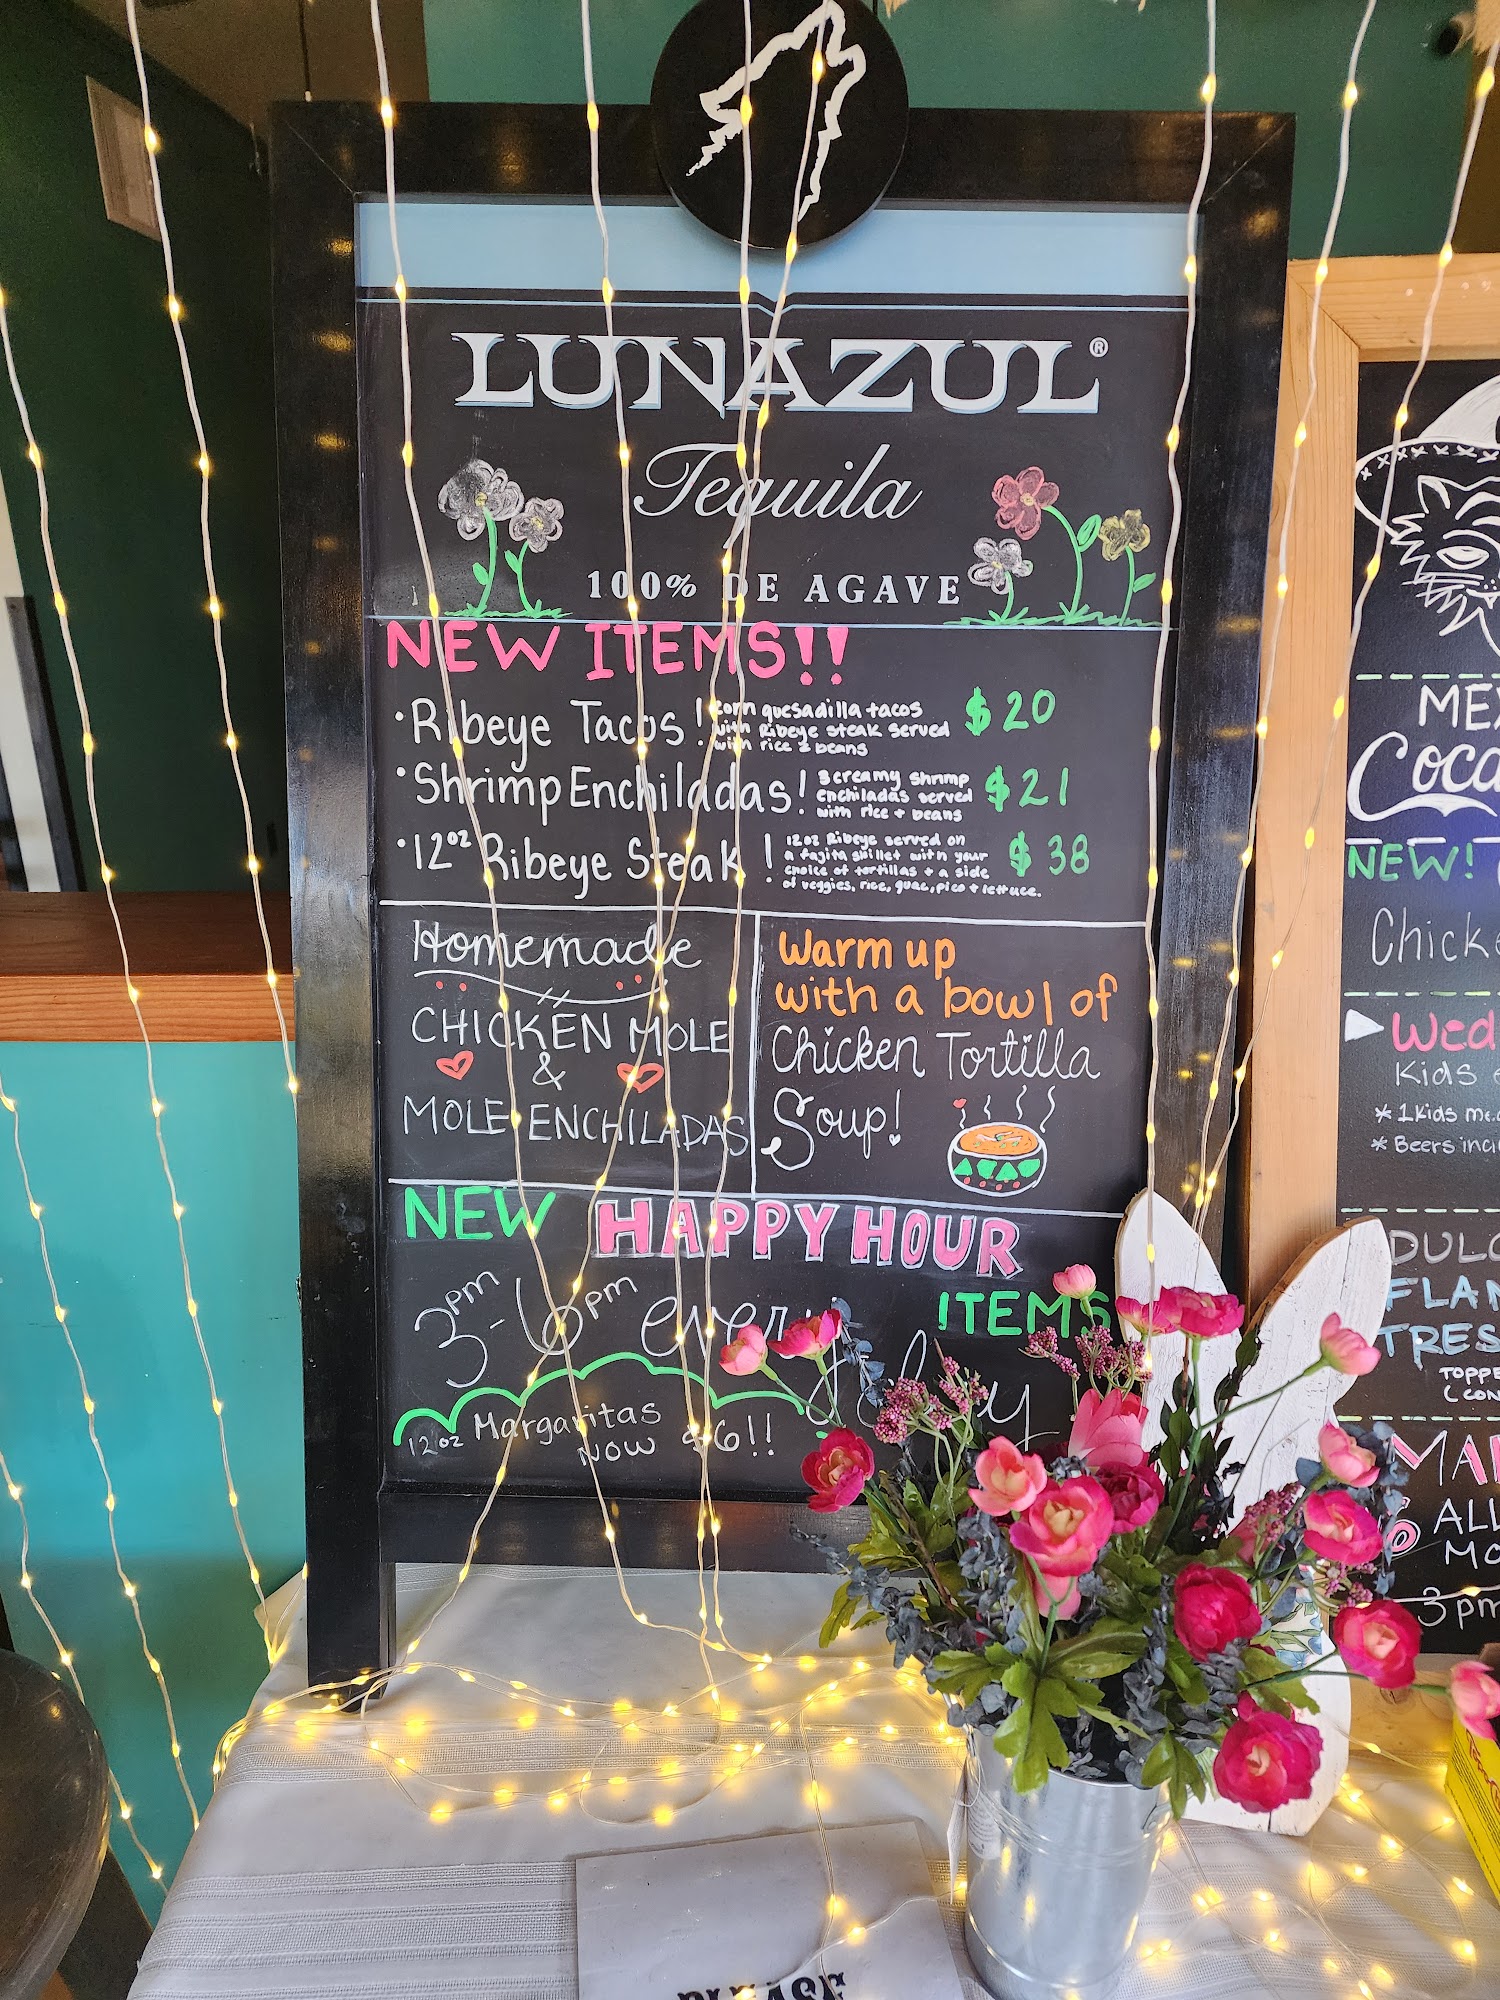 LUNAZUL®
Tequila
100% DE AGAVE
NEW ITEMS!!
• Ribeye Tacos! corn quesadilla tacos
with Ribeye steak served
with rice & beans
$20
• Shrimp Enchiladas! 3 creamy shrimp
enchiladas served
with rice + beans
$21
• 12oz Ribeye Steak! 12oz Ribeye served on
a fajita skillet with your
choice of tortillas + a side
of veggies, rice, guac, pico + lettuce.
$38
Homemade
CHICKEN MOLE
&
MOLE ENCHILADAS
Warm up
with a bowl of
Chicken Tortilla
Soup!
NEW HAPPY HOUR
ITEMS
3pm - 6pm every
12oz Margaritas
NOW $6!!
NEW!
Kids
* 1 Kids
* Beers
FLAN
TRES
ALL
3pm
PLEASE